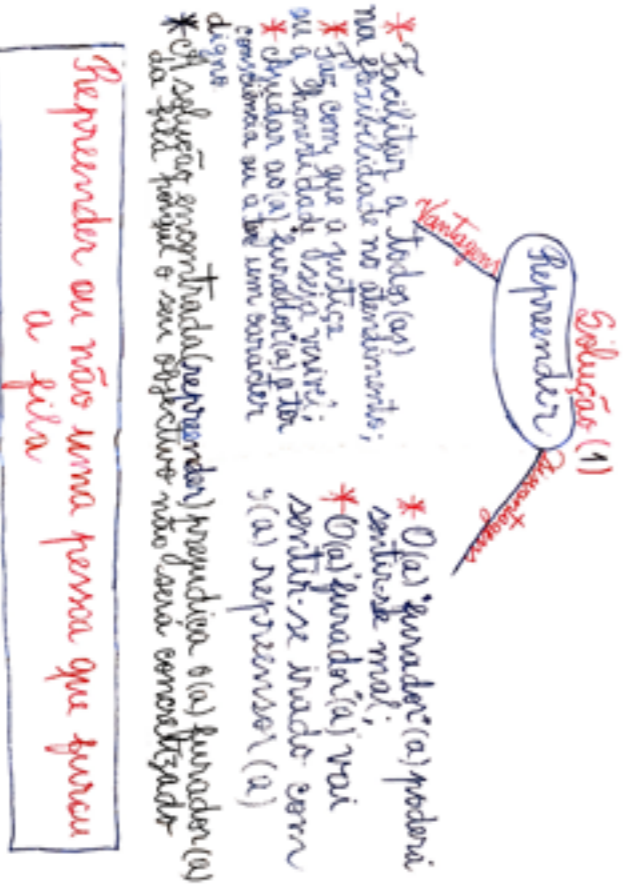 Solução (1)
Repreender
Vantagens
* Facilitar a todos(as)
na flexibilidade no atendimento;
* Faz com que a justiça
ou a honestidade seja visível;
* Ajudar ao(a) furador(a) a ter
consciência ou a ter um caracter
digno.
Desvantagens
* O(a) "furador"(a) poderá
sentir-se mal;
* O(a) "furador"(a) vai
sentir-se irado com
o(a) repreensor(a)
* A solução encontrada (repreender) prejudica o(a) furador(a)
da fila porque o seu objectivo não será concretizado
Repreender ou não uma pessoa que furou
a fila